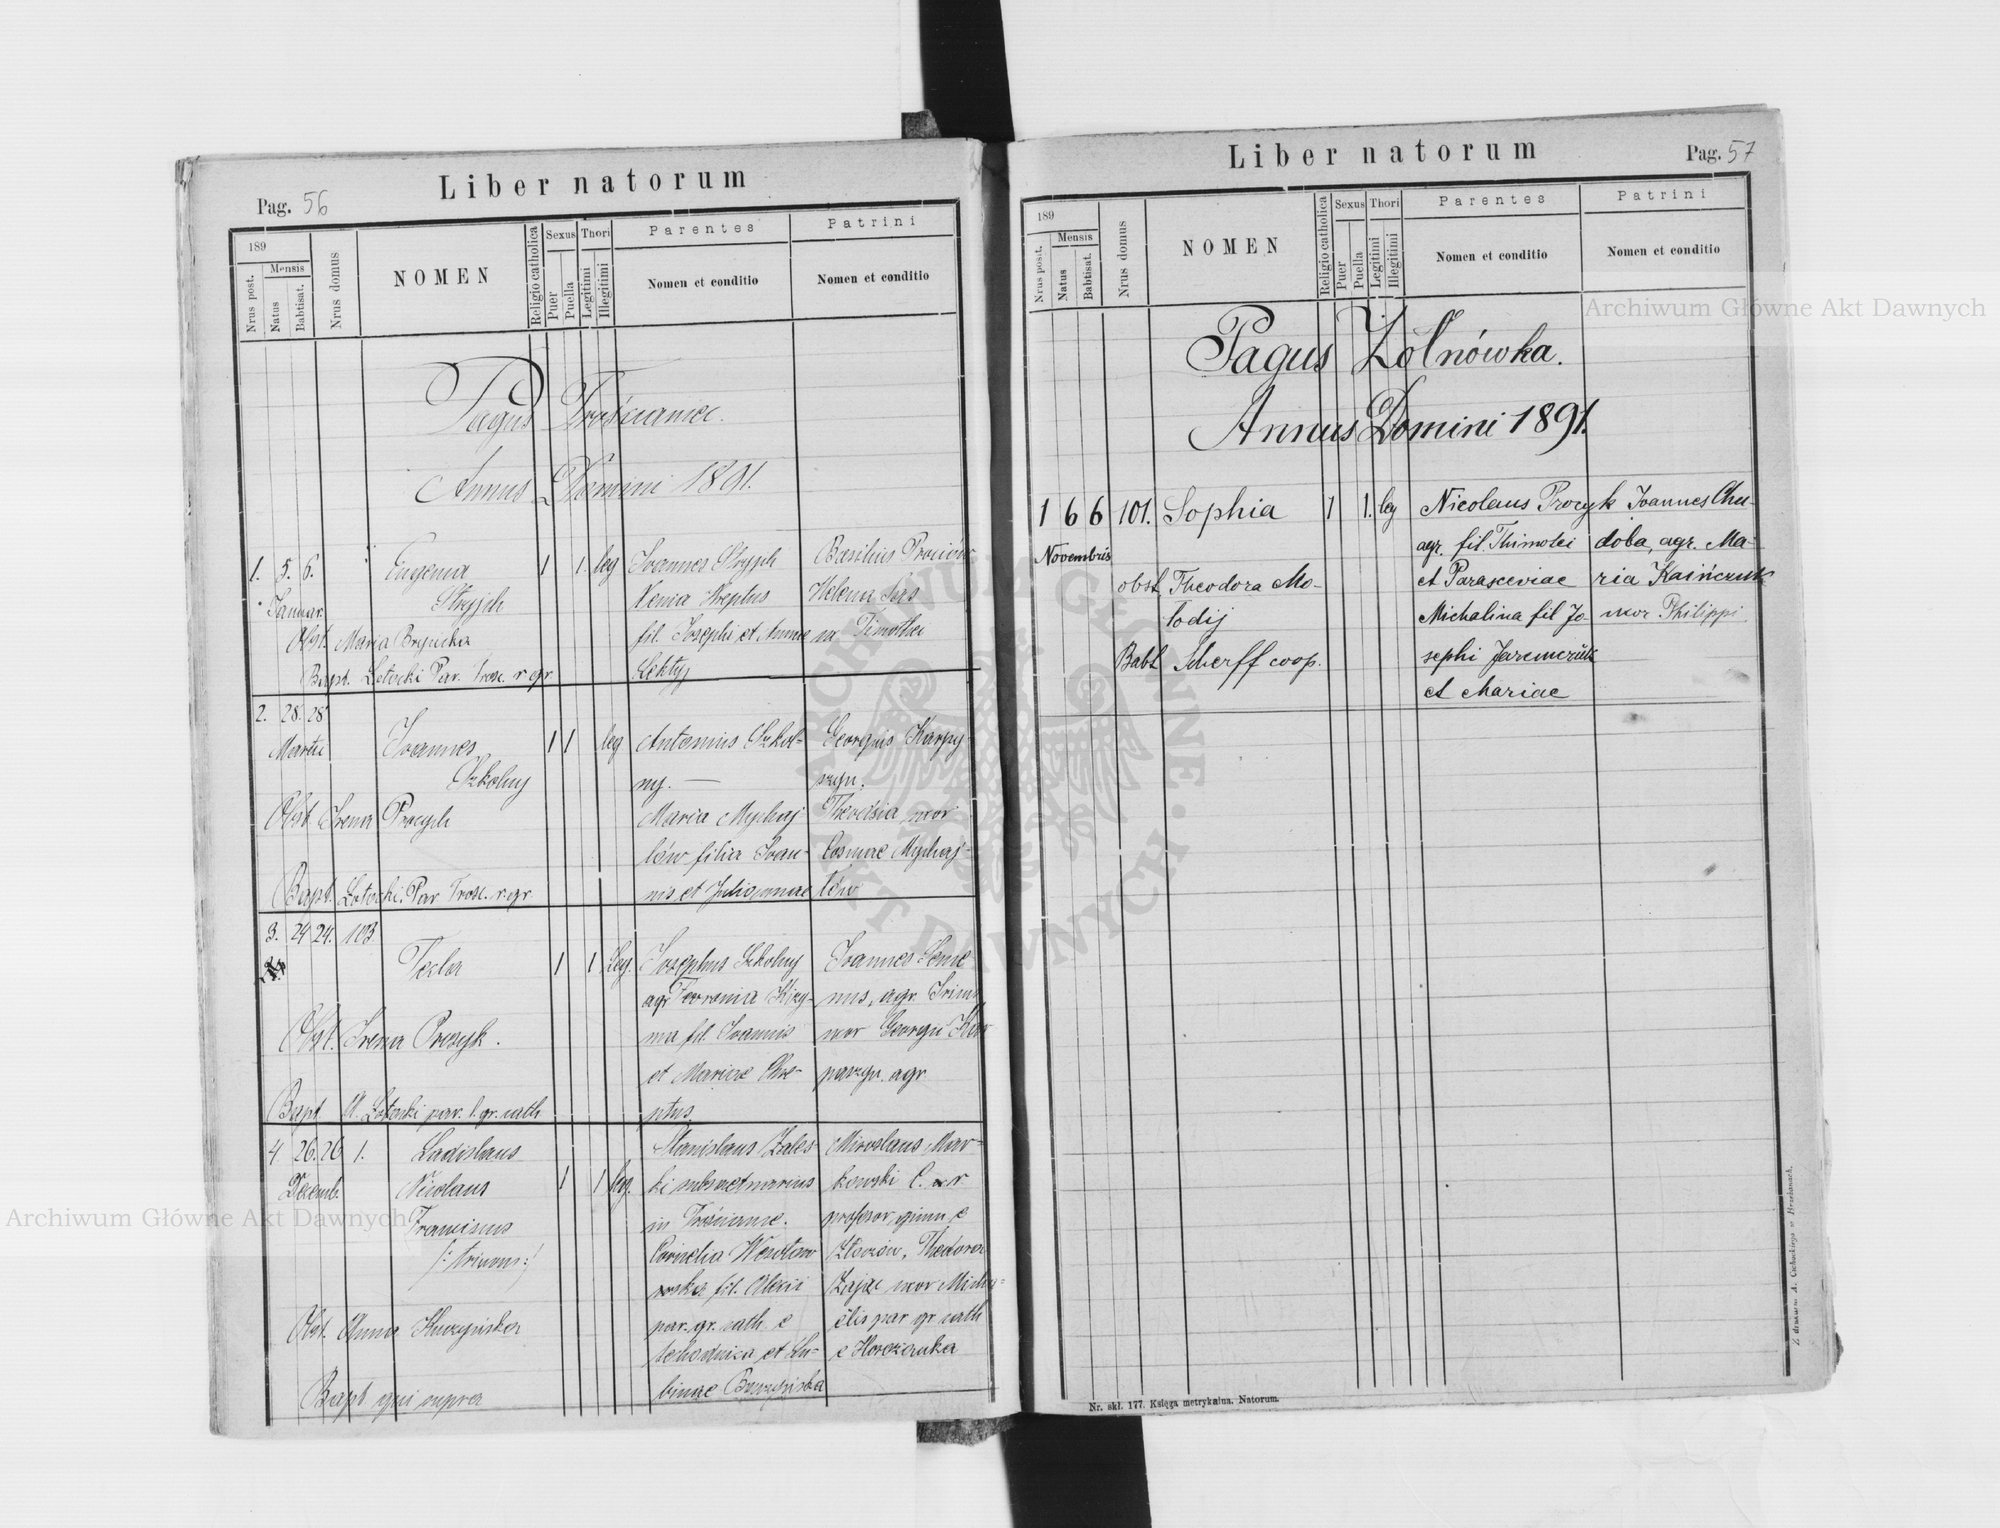 Liber natorum
Pag. 56
189
Mensis
Nrus post.
Natus
Babtisat.
Nrus domus
NOMEN
Religio catholica
Sexus
Puer
Puella
Thori
Legitimi
Illegitimi
Parentes
Nomen et conditio
Patrini
Nomen et conditio
Pagus Trościaniec.
Annus Domini 1891.
1. 5. 6. Eugenia 1 1. leg Joannes Stryjch Basilius
Januar. Stryjch Xenia Hreptus Helena
Obst. Maria fil. Josephi et Annae Timothei
Bapt. Lotocki Par. Trosc. r. gr.
2. 28. 28
Martii Joannes 1 1 leg Antonius Szkol- Georgius Karpy-
Szkolny ny. — szyn.
Obst. Irena Procyk Maria Mychaj Theodosia uxor
lów filia Joan- Cosmae Mychaj-
nis et Juliannae lów
Bapt. Lotocki. Par Trosc. r. gr.
3. 24 24. 103
Tecla 1 1 leg. Josephus Szkolny Joannes
agr. Kizy- agr.
Obst. Irena Procyk. ma fil. Joannis uxor Georgii
et Mariae Hre- agr
ptus
Bapt A. Lotocki par. l. gr. cath
4 26. 26 1. Ladislaus Stanislaus Zales- Miroslaus Mar-
Decemb. Nicolaus 1 1 leg. ki kowski
Franciscus in Trościaniec. professor gimn. e
/: trinom :/ Cornelia Złoczów, Theodora
fil. Alexii Zając uxor Micha-
Obst. Anna par. gr. cath. e elis par gr cath
et Lu- e Horożanka
binae
Bapt qui supra
Liber natorum
Pag. 57
189
Mensis
Nrus post.
Natus
Babtisat.
Nrus domus
NOMEN
Religio catholica
Sexus
Puer
Puella
Thori
Legitimi
Illegitimi
Parentes
Nomen et conditio
Patrini
Nomen et conditio
Pagus Żołnówka.
Annus Domini 1891.
1 6 6 101. Sophia 1 1. leg Nicolaus Procyk Joannes Chu-
Novembris agr. fil. Thimotei doba, agr. Ma-
obst. Theodora Mo- et Parasceviae ria Kaińczuk
lodij Michalina fil Jo- uxor Philippi
Babt Scherff coop. sephi Jaremczuk
et Mariae
Nr. skł. 177. Księga metrykalna. Natorum.
Archiwum Główne Akt Dawnych
Archiwum Główne Akt Dawnych
ARCHIWUM GŁÓWNE AKT DAWNYCH